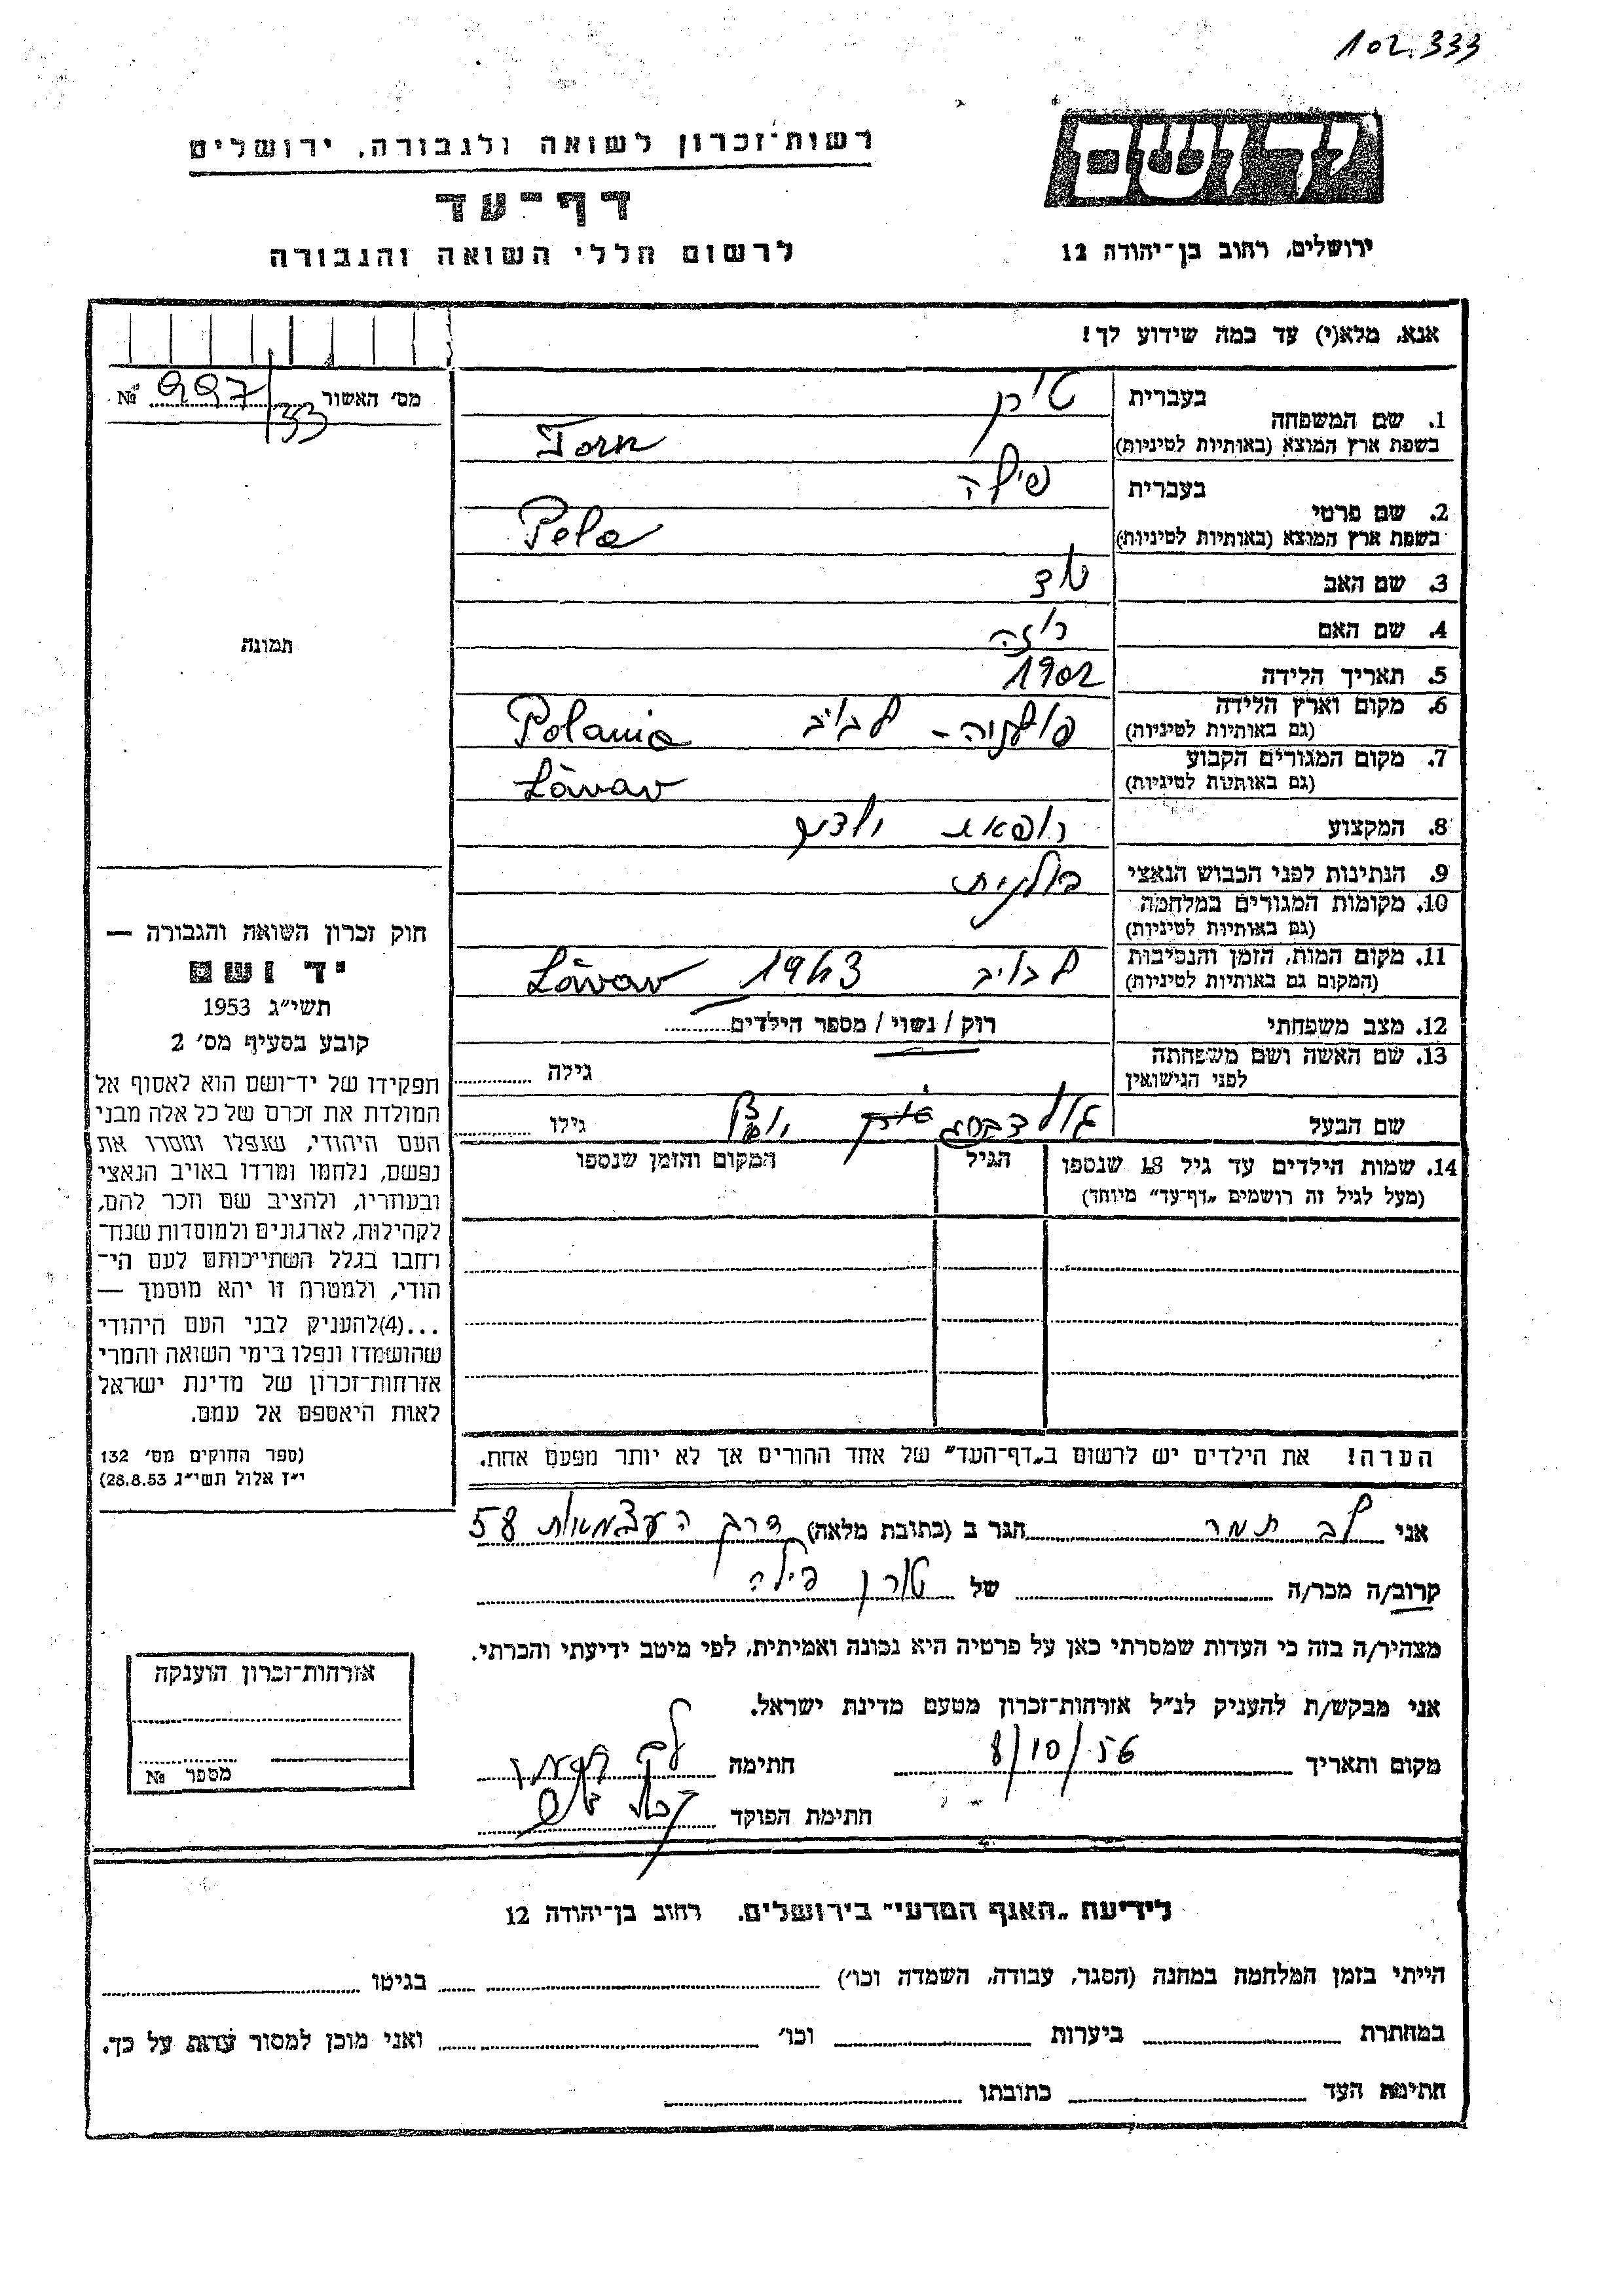 102.333
רשות־זכרון לשואה ולגבורה, ירושלים
דף־עד
לרשום חללי השואה והגבורה
יד ושם
ירושלים, רחוב בן־יהודה 12
אנא, מלא(י) עד כמה שידוע לך!
מס׳ האשור 997/33 №
תמונה
1. שם המשפחה
בעברית טורן
בשפת ארץ המוצא (באותיות לטיניות) Torn
2. שם פרטי
בעברית פילה
בשפת ארץ המוצא (באותיות לטיניות) Pela
3. שם האב
4. שם האם רוזה
5. תאריך הלידה 1902
6. מקום וארץ הלידה
(גם באותיות לטיניות) פולניה - לבוב Polania
7. מקום המגורים הקבוע
(גם באותיות לטיניות) Lăvav
8. המקצוע רופאת
9. הנתינות לפני הכבוש הנאצי פולנית
10. מקומות המגורים במלחמה
(גם באותיות לטיניות)
11. מקום המות, הזמן והנסיבות
(המקום גם באותיות לטיניות) לבוב 1943 Lăvav
12. מצב משפחתי רוק / נשוי / מספר הילדים
13. שם האשה ושם משפחתה
לפני הנישואין גילה
שם הבעל גולדברג גילו
14. שמות הילדים עד גיל 18 שנספו הגיל המקום והזמן שנספו
(מעל לגיל זה רושמים „דף־עד״ מיוחד)
הערה! את הילדים יש לרשום ב„דף־העד״ של אחד ההורים אך לא יותר מפעם אחת.
חוק זכרון השואה והגבורה —
יד ושם
תשי״ג 1953
קובע בסעיף מס׳ 2
תפקידו של יד־ושם הוא לאסוף אל
המולדת את זכרם של כל אלה מבני
העם היהודי, שנפלו ומסרו את
נפשם, נלחמו ומרדו באויב הנאצי
ובעוזריו, ולהציב שם וזכר להם,
לקהילות, לארגונים ולמוסדות שנח־
רחבו בגלל השתייכותם לעם הי־
הודי, ולמטרה זו יהא מוסמך —
...(4)להעניק לבני העם היהודי
שהושמדו ונפלו בימי השואה והמרי
אזרחות־זכרון של מדינת ישראל
לאות היאספם אל עמם.
(ספר החוקים מס׳ 132
י״ז אלול תשי״ג 28.8.53)
אני לב תמר הגר ב (כתובת מלאה) דרך העצמאות 58
קרוב/ה מכר/ה של טורן פילה
מצהיר/ה בזה כי העדות שמסרתי כאן על פרטיה היא נכונה ואמיתית, לפי מיטב ידיעתי והכרתי.
אני מבקש/ת להעניק לנ״ל אזרחות־זכרון מטעם מדינת ישראל.
מקום ותאריך 8/10/56 חתימה לב תמר
חתימת הפוקד
אזרחות־זכרון הוענקה
מספר №
לידיעת „האגף המדעי״ בירושלים. רחוב בן־יהודה 12
הייתי בזמן המלחמה במחנה (הסגר, עבודה, השמדה וכו׳) בגיטו
במחתרת ביערות וכו׳ ואני מוכן למסור עדות על כך.
חתימת העד כתובתו